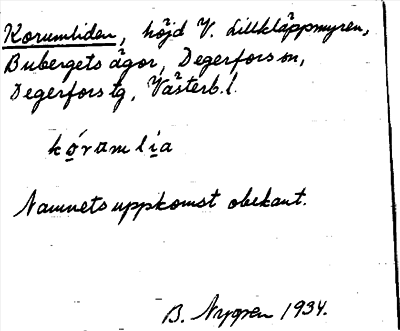 Korumliden, höjd V. Lillkläppmyren,
Bubergets ägor, Degerfors sn,
Degerfors tg, Västerb. l.
kó̱ramli̱a
Namnets uppkomst obekant.
B. Nygren 1934.